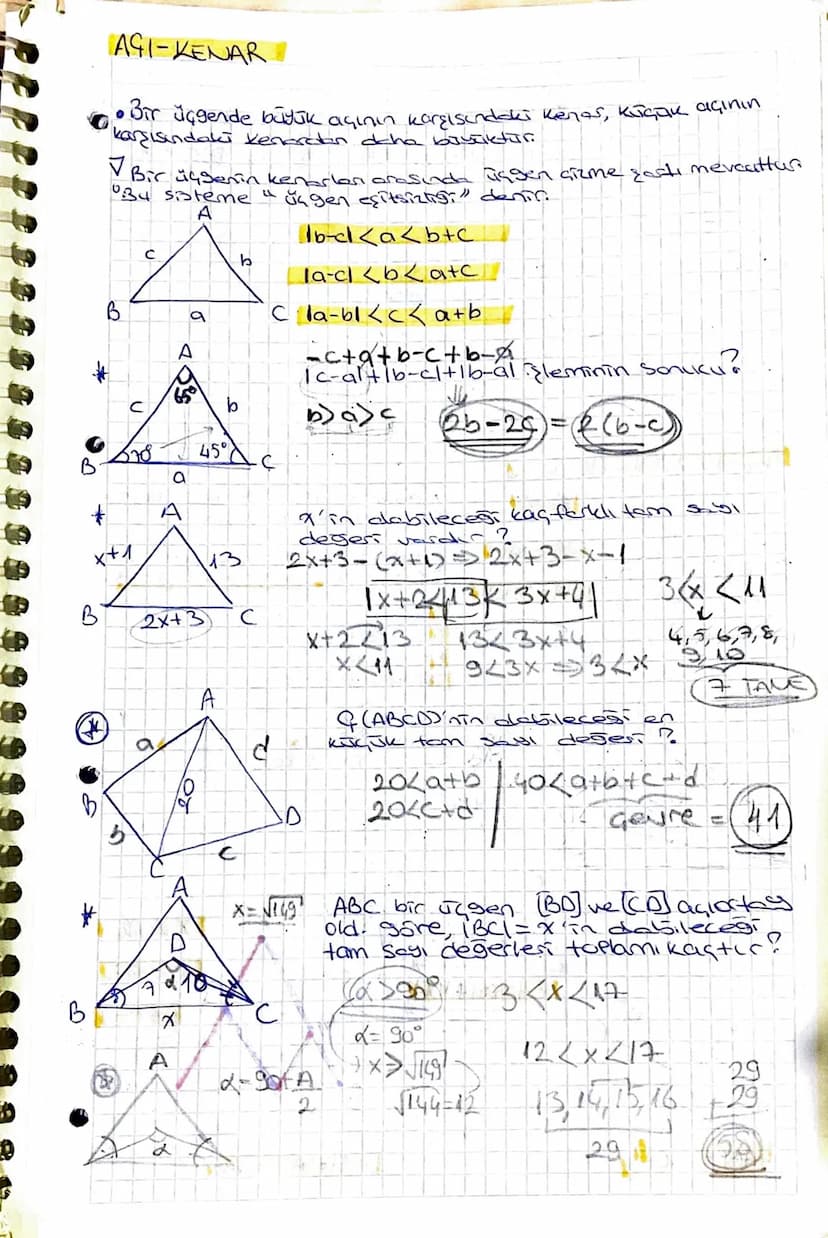 AÇI-KENAR
• Bir üçgende büyük açının karşısındaki kenar, küçük açının
karşısındaki kenardan daha büyüktür.
Bir üçgenin kenarları arasında üçgen çizme şartı mevcuttur.
Bu sisteme "üçgen eşitsizliği" denir.
A
c
b
B
a
C
|b-c|<a<b+c
|a-c|<b<a+c
|a-b|<c<a+b
* A
65°
c
b
B
70°
45°
C
a
-c+a+b-c+b-a
|c-a|+|b-c|+|b-a| işleminin sonucu?
b>a>c
2b-2c = 2(b-c)
* A
x+1
13
B
2x+3
C
x'in alabileceği kaç farklı tam sayı
değeri vardır?
2x+3-(x+1) => 2x+3-x-1
|x+2<13< 3x+4|
3<x<11
x+2<13
13<3x+4
4,5,6,7,8,
x<11
9<3x => 3<x
9,10
7 TANE
* A
a
d
20
B
D
b
c
C
Ç(ABCD)'nin alabileceği en
küçük tam sayı değeri?
20<a+b
40<a+b+c+d
20<c+d
Çevre = 41
* A
x=√149
D
7
α
10
B
x
C
ABC bir üçgen [BD] ve [CD] açıortay
old. göre, |BC|=x'in alabileceği
tam sayı değerleri toplamı kaçtır?
α>90°
3<x<17
α=90°
x>√149
√144=12
12<x<17
13,14,15,16
29
29
+29
58
* A
α
α=90+A
2